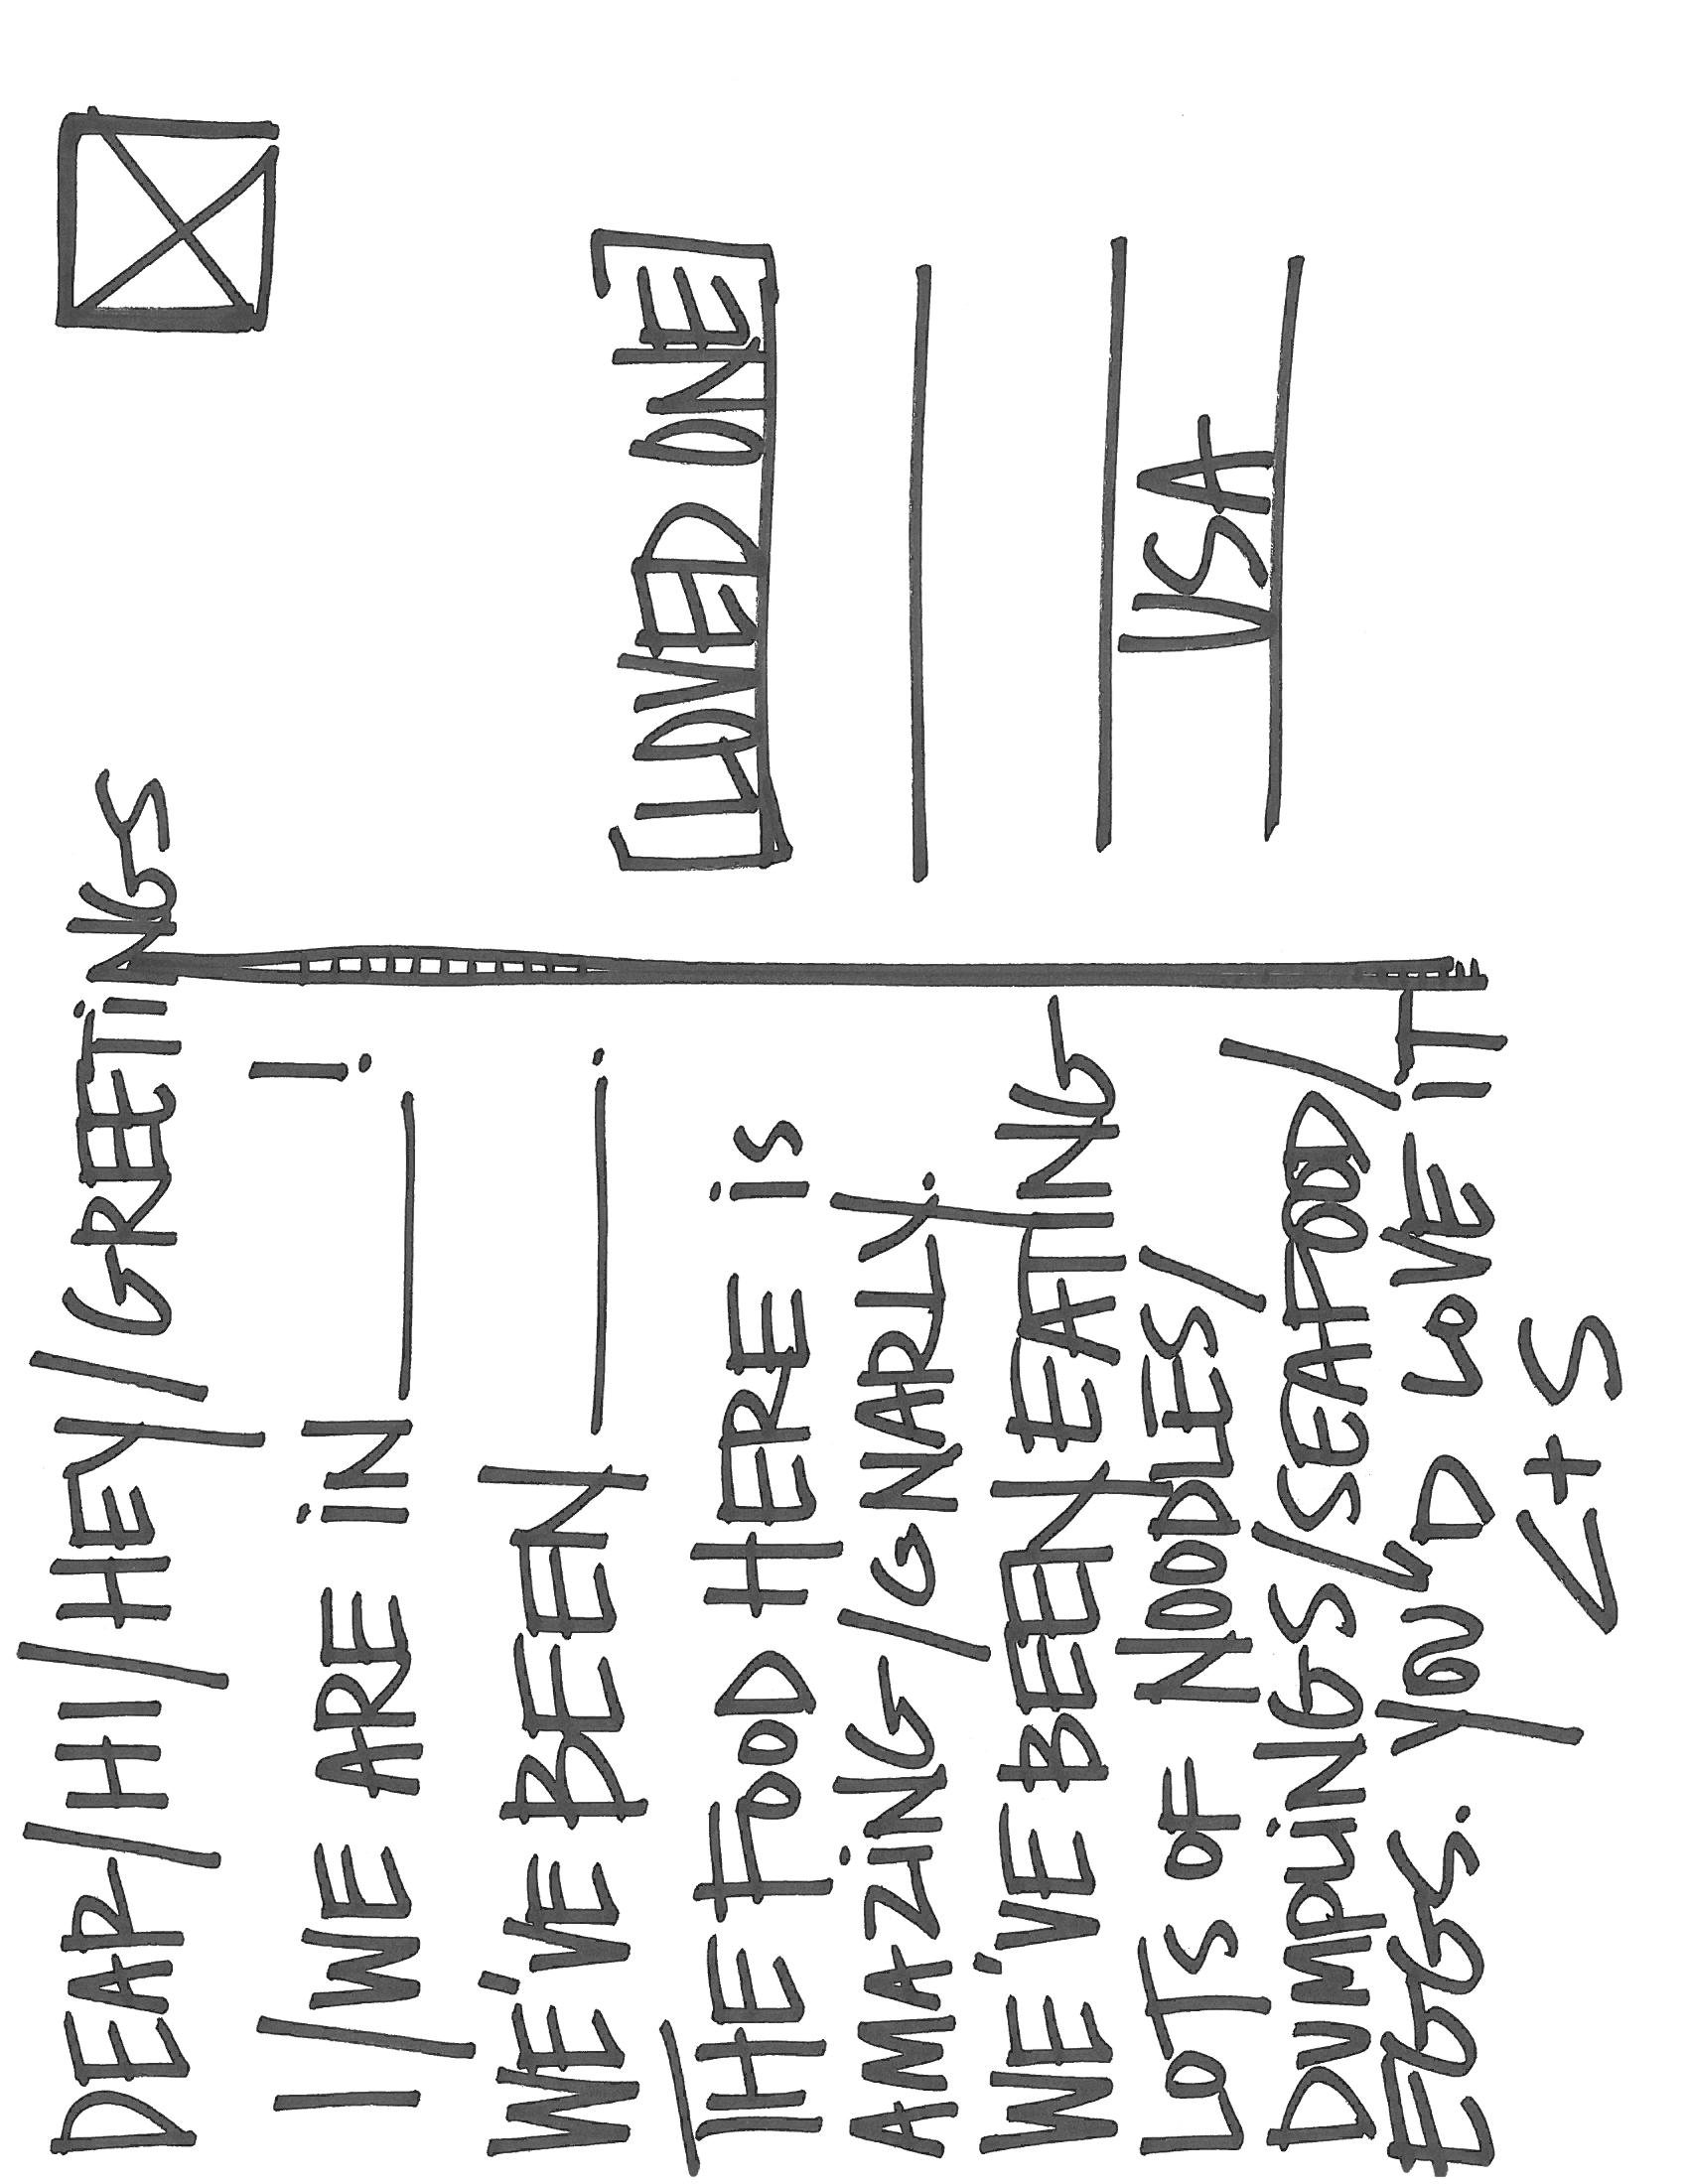 DEAR/HI/HEY/GREETINGS
I/WE ARE IN ______!
WE'VE BEEN ______.
THE FOOD HERE IS
AMAZING/GNARLY.
WE'VE BEEN EATING
LOTS OF NOODLES/
DUMPLINGS/SEAFOOD/
EGGS. YOU'D LOVE IT
L+S
[LOVED ONE]
USA